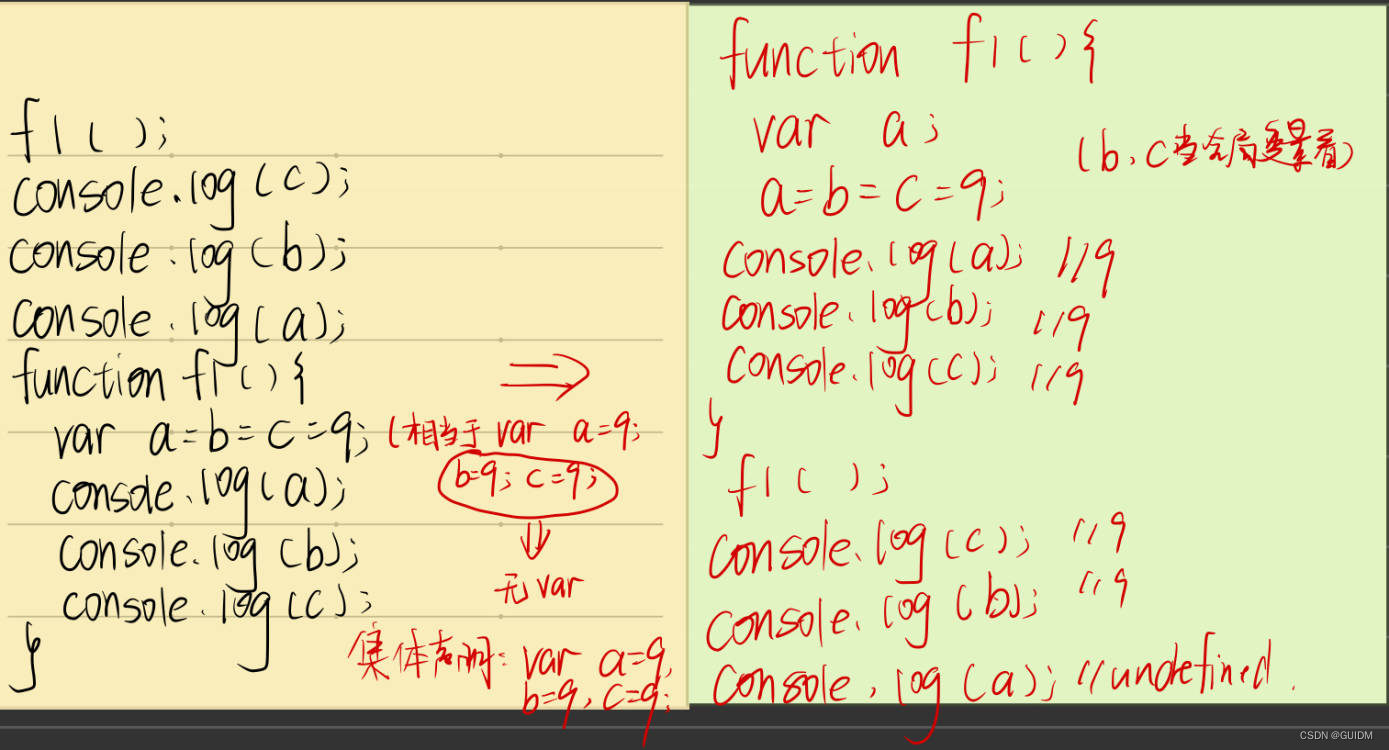 f1();
console.log(c);
console.log(b);
console.log(a);
function f1(){
var a=b=c=9; (相当于 var a=9;
b=9; c=9;
console.log(a);
console.log(b);
无var
console.log(c);
}
集体声明: var a=9,
b=9, c=9;
function f1(){
var a;
(b、c当全局变量看)
a=b=c=9;
console.log(a); //9
console.log(b); //9
console.log(c); //9
}
f1();
console.log(c); //9
console.log(b); //9
console.log(a); //undefined.
CSDN @GUIDM